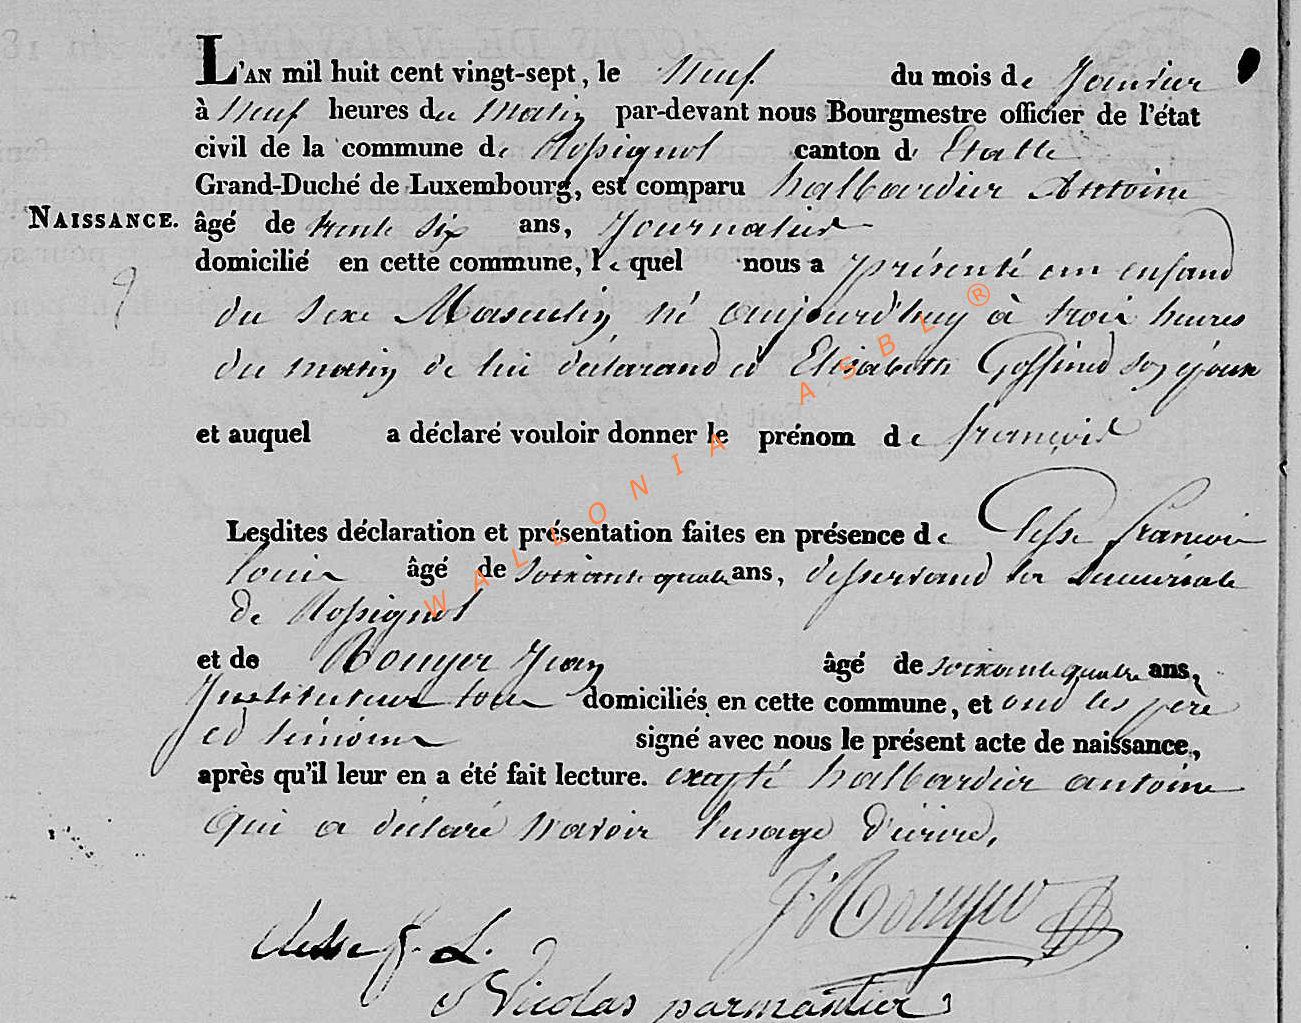 L'AN mil huit cent vingt-sept, le Neuf du mois de Janvier
à Neuf heures du Matin par-devant nous Bourgmestre officier de l'état
civil de la commune de Rossignol canton d' Etalle
Grand-Duché de Luxembourg, est comparu halbardier Antoine
NAISSANCE. âgé de trente six ans, Journalier
domicilié en cette commune, le quel nous a présenté un enfand
du sexe Masculin né aujourd'huy à trois heures
du matin de lui déclarand et Elisabeth Goffined son épouse
et auquel a déclaré vouloir donner le prénom de françois
Lesdites déclaration et présentation faites en présence de françois
Louis âgé de soixante quatre ans, desservand la succursale
de Rossignol
et de Rouyer Jean âgé de soixante quatre ans,
Instituteur tous domiciliés en cette commune, et ond les père
et témoins signé avec nous le présent acte de naissance,
après qu'il leur en a été fait lecture. excepté halbardier antoine
qui a déclaré n'avoir l'usage d'écrire.
J. Rouyer
f. L.
Nicolas parmantier
WALLONIA ASBL ®